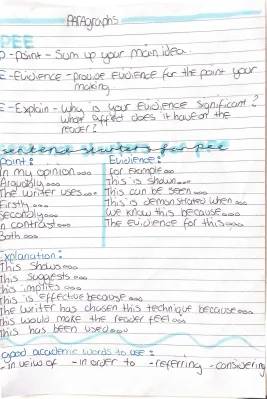 PARAGRAPHS
PEE
P - Point - Sum up your main idea.
E - Evidence - provide evidence for the point your
making.
E - Explain - Why is your evidence significant?
What affect does it have on the
reader?
sentence starters for pee
point:
In my opinion...
Arguably...
The writer uses...
Firstly...
Secondly...
In contrast...
Both...
Evidence:
For example...
This is shown...
This can be seen...
This is demonstrated when...
We know this because...
The evidence for this...
Explanation:
This shows...
This suggests...
This implies...
This is effective because...
The writer has chosen this technique because...
This would make the reader feel...
This has been used...
good academic words to use:
- in veiw of - in order to - referring - considering